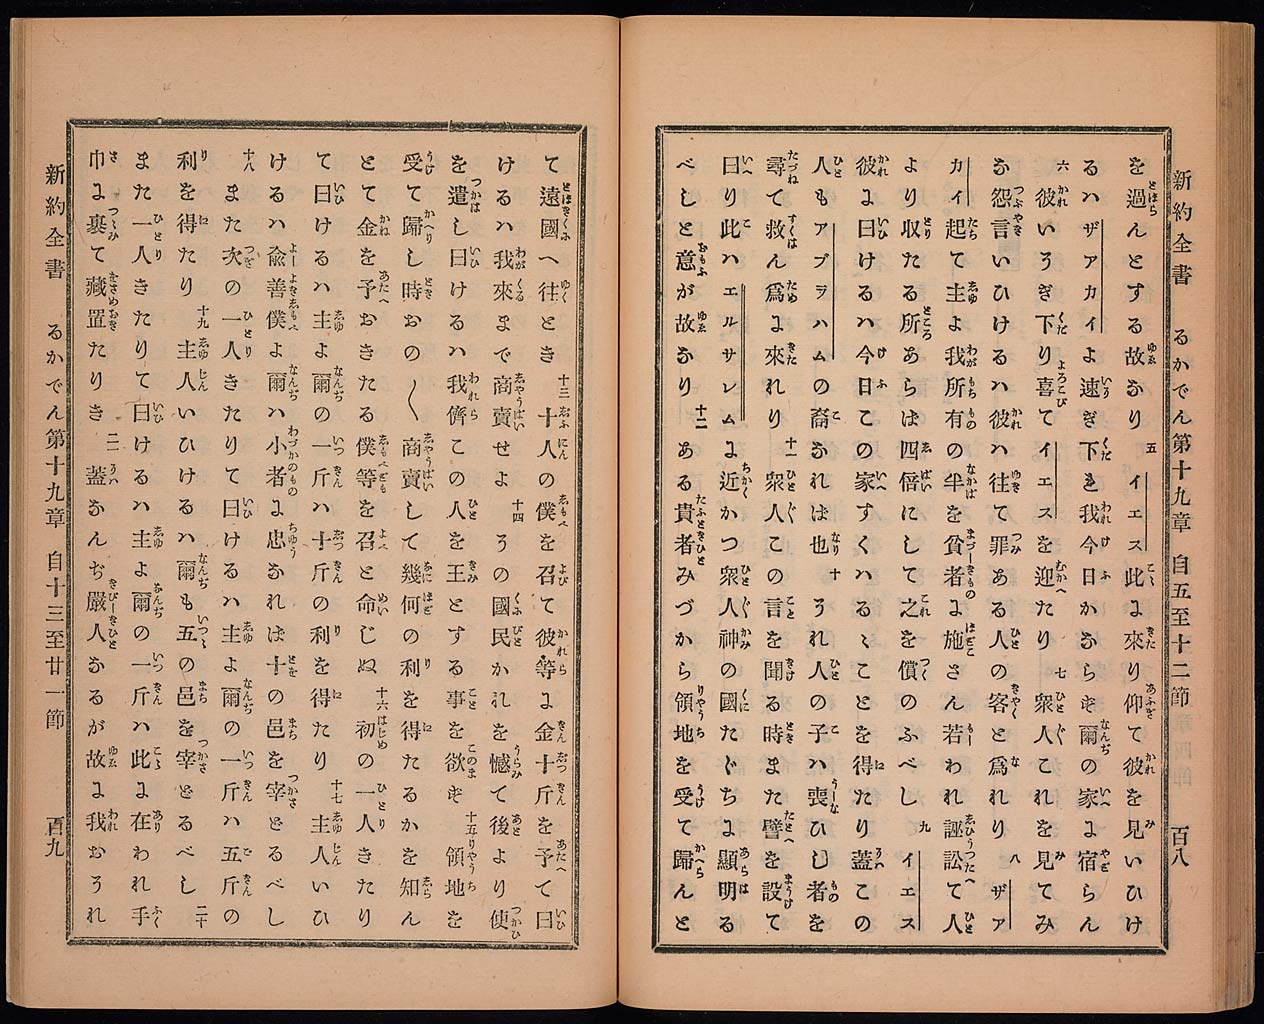 新約全書　るかでん第十九章　自五至十二節　百八
を過んとする故なり　五　イエス此に來り仰て彼を見いひけ
るハザアカイよ速ぎ下を我今日かならず爾の家に宿らん
六　彼いろぎ下り喜てイエスを迎たり　七　衆人これを見てみ
な怨言いひけるハ彼ハ往て罪ある人の客と爲れり　八　ザア
カイ起て主よ我所有の半を貧者に施さん若われ誣訟て人
より取たる所あらば四倍にして之を償のふべし　九　イエス
彼に曰けるハ今日この家すくハるゝことを得たり蓋この
人もアブラハムの裔なれば也　十　うれ人の子ハ喪ひし者を
尋て救ん爲に來れり　十一　衆人この言を聞る時また譬を設て
曰り此ハエルサレムに近かつ衆人神の國たぐちに顯明る
べしと意が故なり　十二　ある貴者みづから領地を受て歸んと
て遠國へ往とき　十三　十人の僕を召て彼等に金十斤を予て曰
けるハ我來まで商賣せよ　十四　うの國民かれを憾て後より使
を遣し曰けるハ我儕この人を王とする事を欲ず　十五　領地を
受て歸し時おの〱商賣して幾何の利を得たるかを知ん
とて金を予おきたる僕等を召と命じぬ　十六　初の一人きたり
て曰けるハ主よ爾の一斤ハ十斤の利を得たり　十七　主人いひ
けるハ兪善僕よ爾ハ小者に忠なれば十の邑を宰どるべし
十八　また次の一人きたりて曰けるハ主よ爾の一斤ハ五斤の
利を得たり　十九　主人いひけるハ爾も五の邑を宰どるべし　二十
また一人きたりて曰けるハ主よ爾の一斤ハ此に在われ手
巾に裹て藏置たりき　二一　蓋なんぢ嚴人なるが故に我おうれ
新約全書　るかでん第十九章　自十三至廿一節　百九